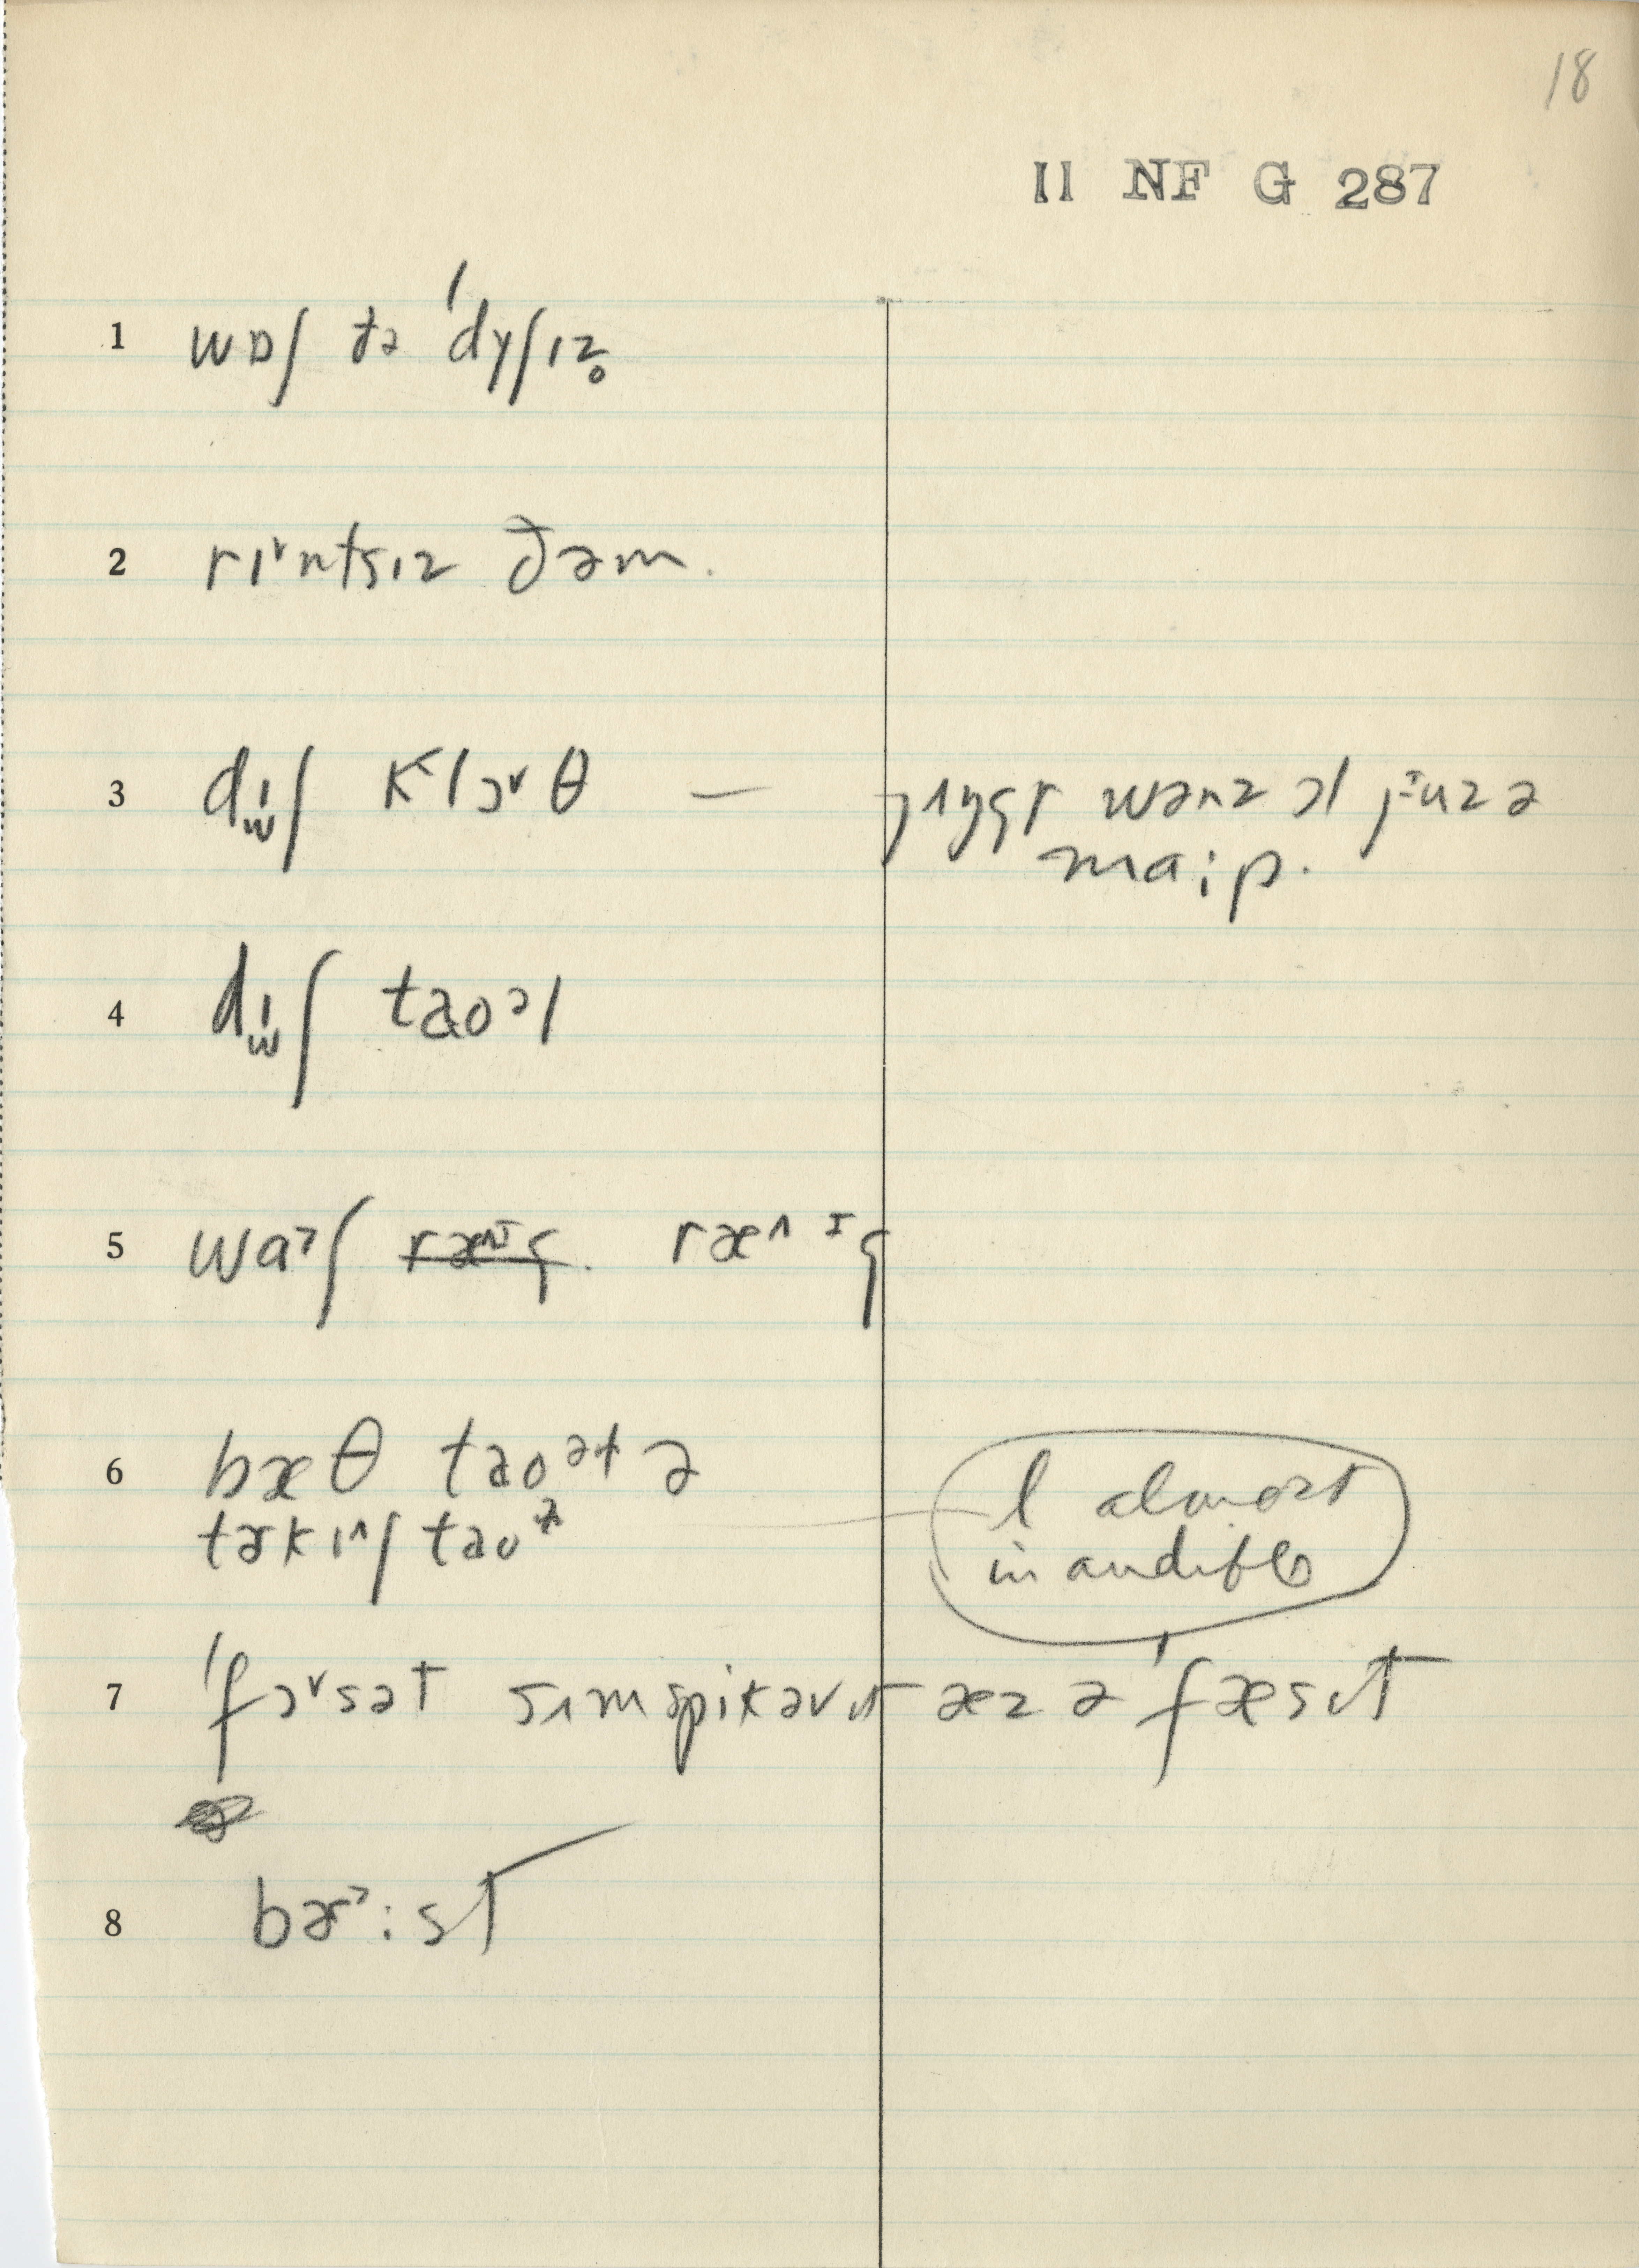 18
II NF G 287
1 wɒʃ ðə ˈdyʃɪz̥
2 rɪ˅ntsɪz ðəm.
3 dɨʃ klɔ˅θ — jʌŋgɚ wənz əl juzə
maːp.
4 dɨʃ taoəl
5 waʃ ræg. ræ^ɪg
6 bæθ taoəɫ ə
tɚkɪ^ʃ taoɫ
l almost
inaudible
7 ˈfɔ˅sət sʌmspikəvɪt æz ə ˈfæsɪt
8 bɚːst